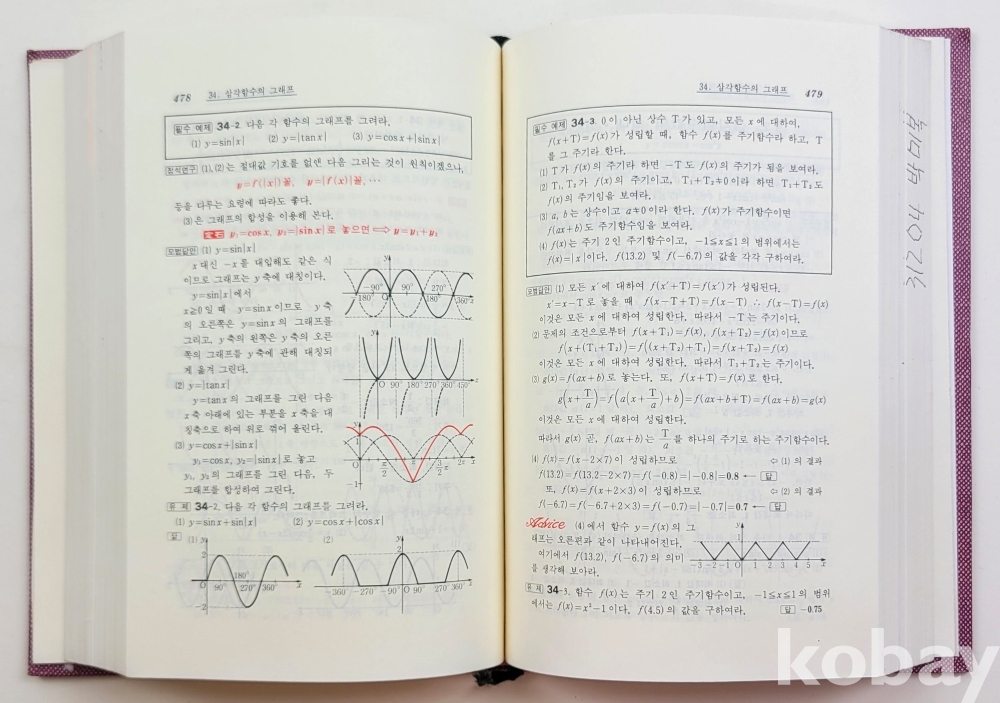 478 34. 삼각함수의 그래프
필수 예제 34-2. 다음 각 함수의 그래프를 그려라.
(1) y=sin|x| (2) y=|tan x| (3) y=cos x+|sin x|
정석연구 (1), (2)는 절대값 기호를 없앤 다음 그리는 것이 원칙이겠으나,
y=f(|x|)꼴, y=|f(x)|꼴, …
등을 다루는 요령에 따라도 좋다.
(3)은 그래프의 합성을 이용해 본다.
정석 y₁=cos x, y₂=|sin x|로 놓으면 ⟺ y=y₁+y₂
모범답안 (1) y=sin|x|
x 대신 -x를 대입해도 같은 식
이므로 그래프는 y축에 대칭이다.
y=sin|x|에서
x≥0일 때 y=sin x이므로 y축
의 오른쪽은 y=sin x의 그래프를
그리고, y축의 왼쪽은 y축의 오른
쪽의 그래프를 y축에 관해 대칭되
게 옮겨 그린다.
(2) y=|tan x|
y=tan x의 그래프를 그린 다음
x축 아래에 있는 부분을 x축을 대
칭축으로 하여 위로 꺾어 올린다.
(3) y=cos x+|sin x|
y₁=cos x, y₂=|sin x|로 놓고
y₁, y₂의 그래프를 그린 다음, 두
그래프를 합성하여 그린다.
y
-90° O 180° 360°
180° 90° 270° x
y
O 90° 180° 270° 360° 450° x
y
1
O π/2 π 3/2π 2π x
-1
유제 34-2. 다음 각 함수의 그래프를 그려라.
(1) y=sin x+|sin x| (2) y=cos x+|cos x|
답 (1) (2)
y
2
180°
O 90° 270° 360° x
-2
y
2
-270° -90° O 90° 270° x
-360° 360°
34. 삼각함수의 그래프 479
필수 예제 34-3. 0이 아닌 상수 T가 있고, 모든 x에 대하여,
f(x+T)=f(x)가 성립할 때, 함수 f(x)를 주기함수라 하고, T
를 그 주기라 한다.
(1) T가 f(x)의 주기라 하면 -T도 f(x)의 주기가 됨을 보여라.
(2) T₁, T₂가 f(x)의 주기이고, T₁+T₂≠0이라 하면 T₁+T₂도
f(x)의 주기임을 보여라.
(3) a, b는 상수이고 a≠0이라 한다. f(x)가 주기함수이면
f(ax+b)도 주기함수임을 보여라.
(4) f(x)는 주기 2인 주기함수이고, -1≤x≤1의 범위에서는
f(x)=|x|이다. f(13.2) 및 f(-6.7)의 값을 각각 구하여라.
모범답안 (1) 모든 x′에 대하여 f(x′+T)=f(x′)가 성립된다.
x′=x-T로 놓을 때 f(x-T+T)=f(x-T) ∴ f(x-T)=f(x)
이것은 모든 x에 대하여 성립한다. 따라서 -T는 주기이다.
(2) 문제의 조건으로부터 f(x+T₁)=f(x), f(x+T₂)=f(x)이므로
f(x+(T₁+T₂))=f((x+T₂)+T₁)=f(x+T₂)=f(x)
이것은 모든 x에 대하여 성립한다. 따라서 T₁+T₂는 주기이다.
(3) g(x)=f(ax+b)로 놓는다. 또, f(x+T)=f(x)로 한다.
g(x+T/a)=f(a(x+T/a)+b)=f(ax+b+T)=f(ax+b)=g(x)
이것은 모든 x에 대하여 성립한다.
따라서 g(x) 곧, f(ax+b)는 T/a를 하나의 주기로 하는 주기함수이다.
(4) f(x)=f(x-2×7)이 성립하므로 ⇦ (1)의 결과
f(13.2)=f(13.2-2×7)=f(-0.8)=|-0.8|=0.8 ← 답
또, f(x)=f(x+2×3)이 성립하므로 ⇦ (2)의 결과
f(-6.7)=f(-6.7+2×3)=f(-0.7)=|-0.7|=0.7 ← 답
Advice (4)에서 함수 y=f(x)의 그
래프는 오른편과 같이 나타내어진다.
여기에서 f(13.2), f(-6.7)의 의미
를 생각해 보아라.
y
1
-3 -2 -1 O 1 2 3 4 5 x
유제 34-3. 함수 f(x)는 주기 2인 주기함수이고, -1≤x≤1의 범위
에서는 f(x)=x²-1이다. f(4.5)의 값을 구하여라. 답 -0.75
kobay